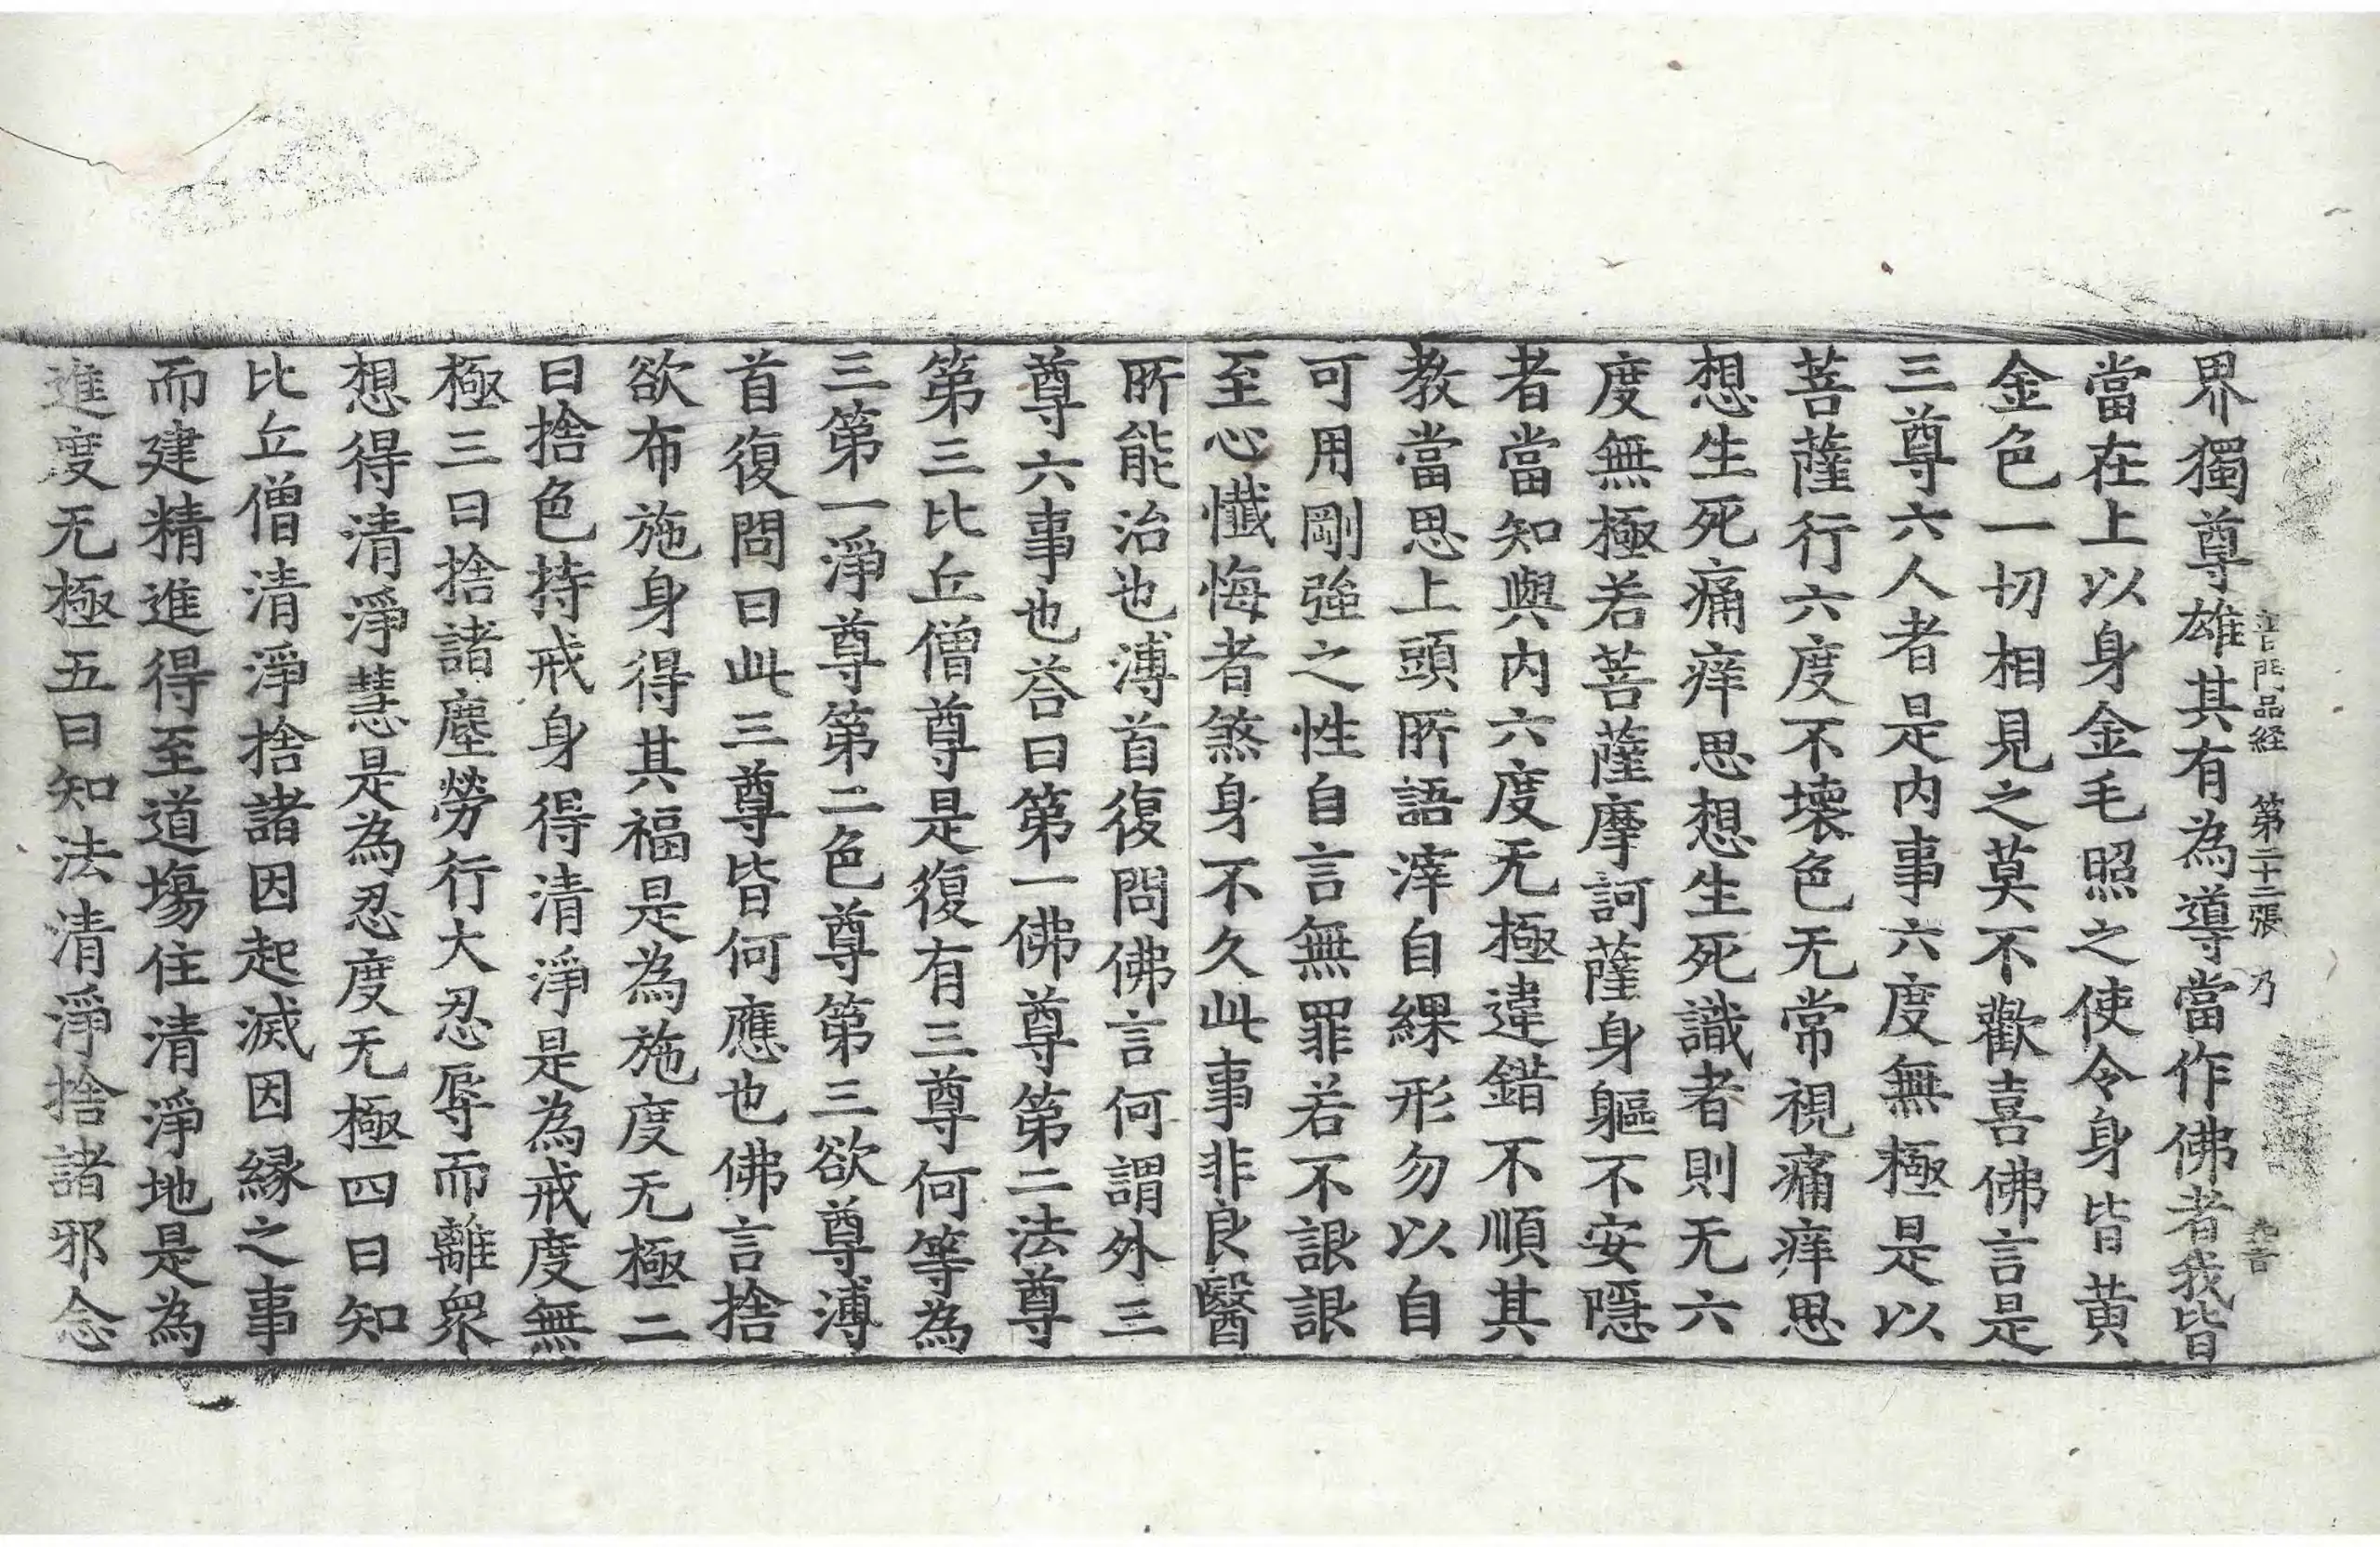 普門品経 第二十二張 乃
界獨尊雄其有為導當作佛者我皆
當在上以身金毛照之使令身皆黃
金色一切相見之莫不歡喜佛言是
三尊六人者是內事六度無極是以
菩薩行六度不壞色无常視痛痒思
想生死痛痒思想生死識者則无六
度無極若菩薩摩訶薩身軀不安隱
者當知與內六度无極違錯不順其
教當思上頭所語滓自綶形勿以自
可用剛強之性自言無罪若不詪詪
至心懺悔者煞身不久此事非良醫
所能治也溥首復問佛言何謂外三
尊六事也荅曰第一佛尊第二法尊
第三比丘僧尊是復有三尊何等為
三第一淨尊第二色尊第三欲尊溥
首復問曰此三尊皆何應也佛言捨
欲布施身得其福是為施度无極二
曰捨色持戒身得清淨是為戒度無
極三曰捨諸塵勞行大忍辱而離衆
想得清淨慧是為忍度无極四曰知
比丘僧清淨捨諸因起滅因緣之事
而建精進得至道場住清淨地是為
進度无極五曰知法清淨捨諸邪念